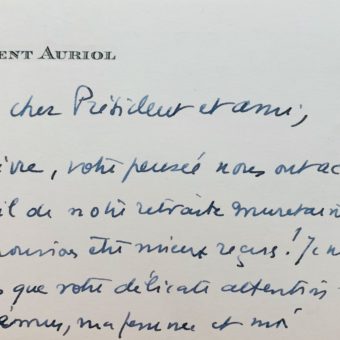 ENT AURIOL
cher Président et ami,
ivre, votre pensée nous ont ac
il de notre retraite muretain
pouvions être mieux reçus ! Je n
s que votre délicate attention
émus, ma femme et moi